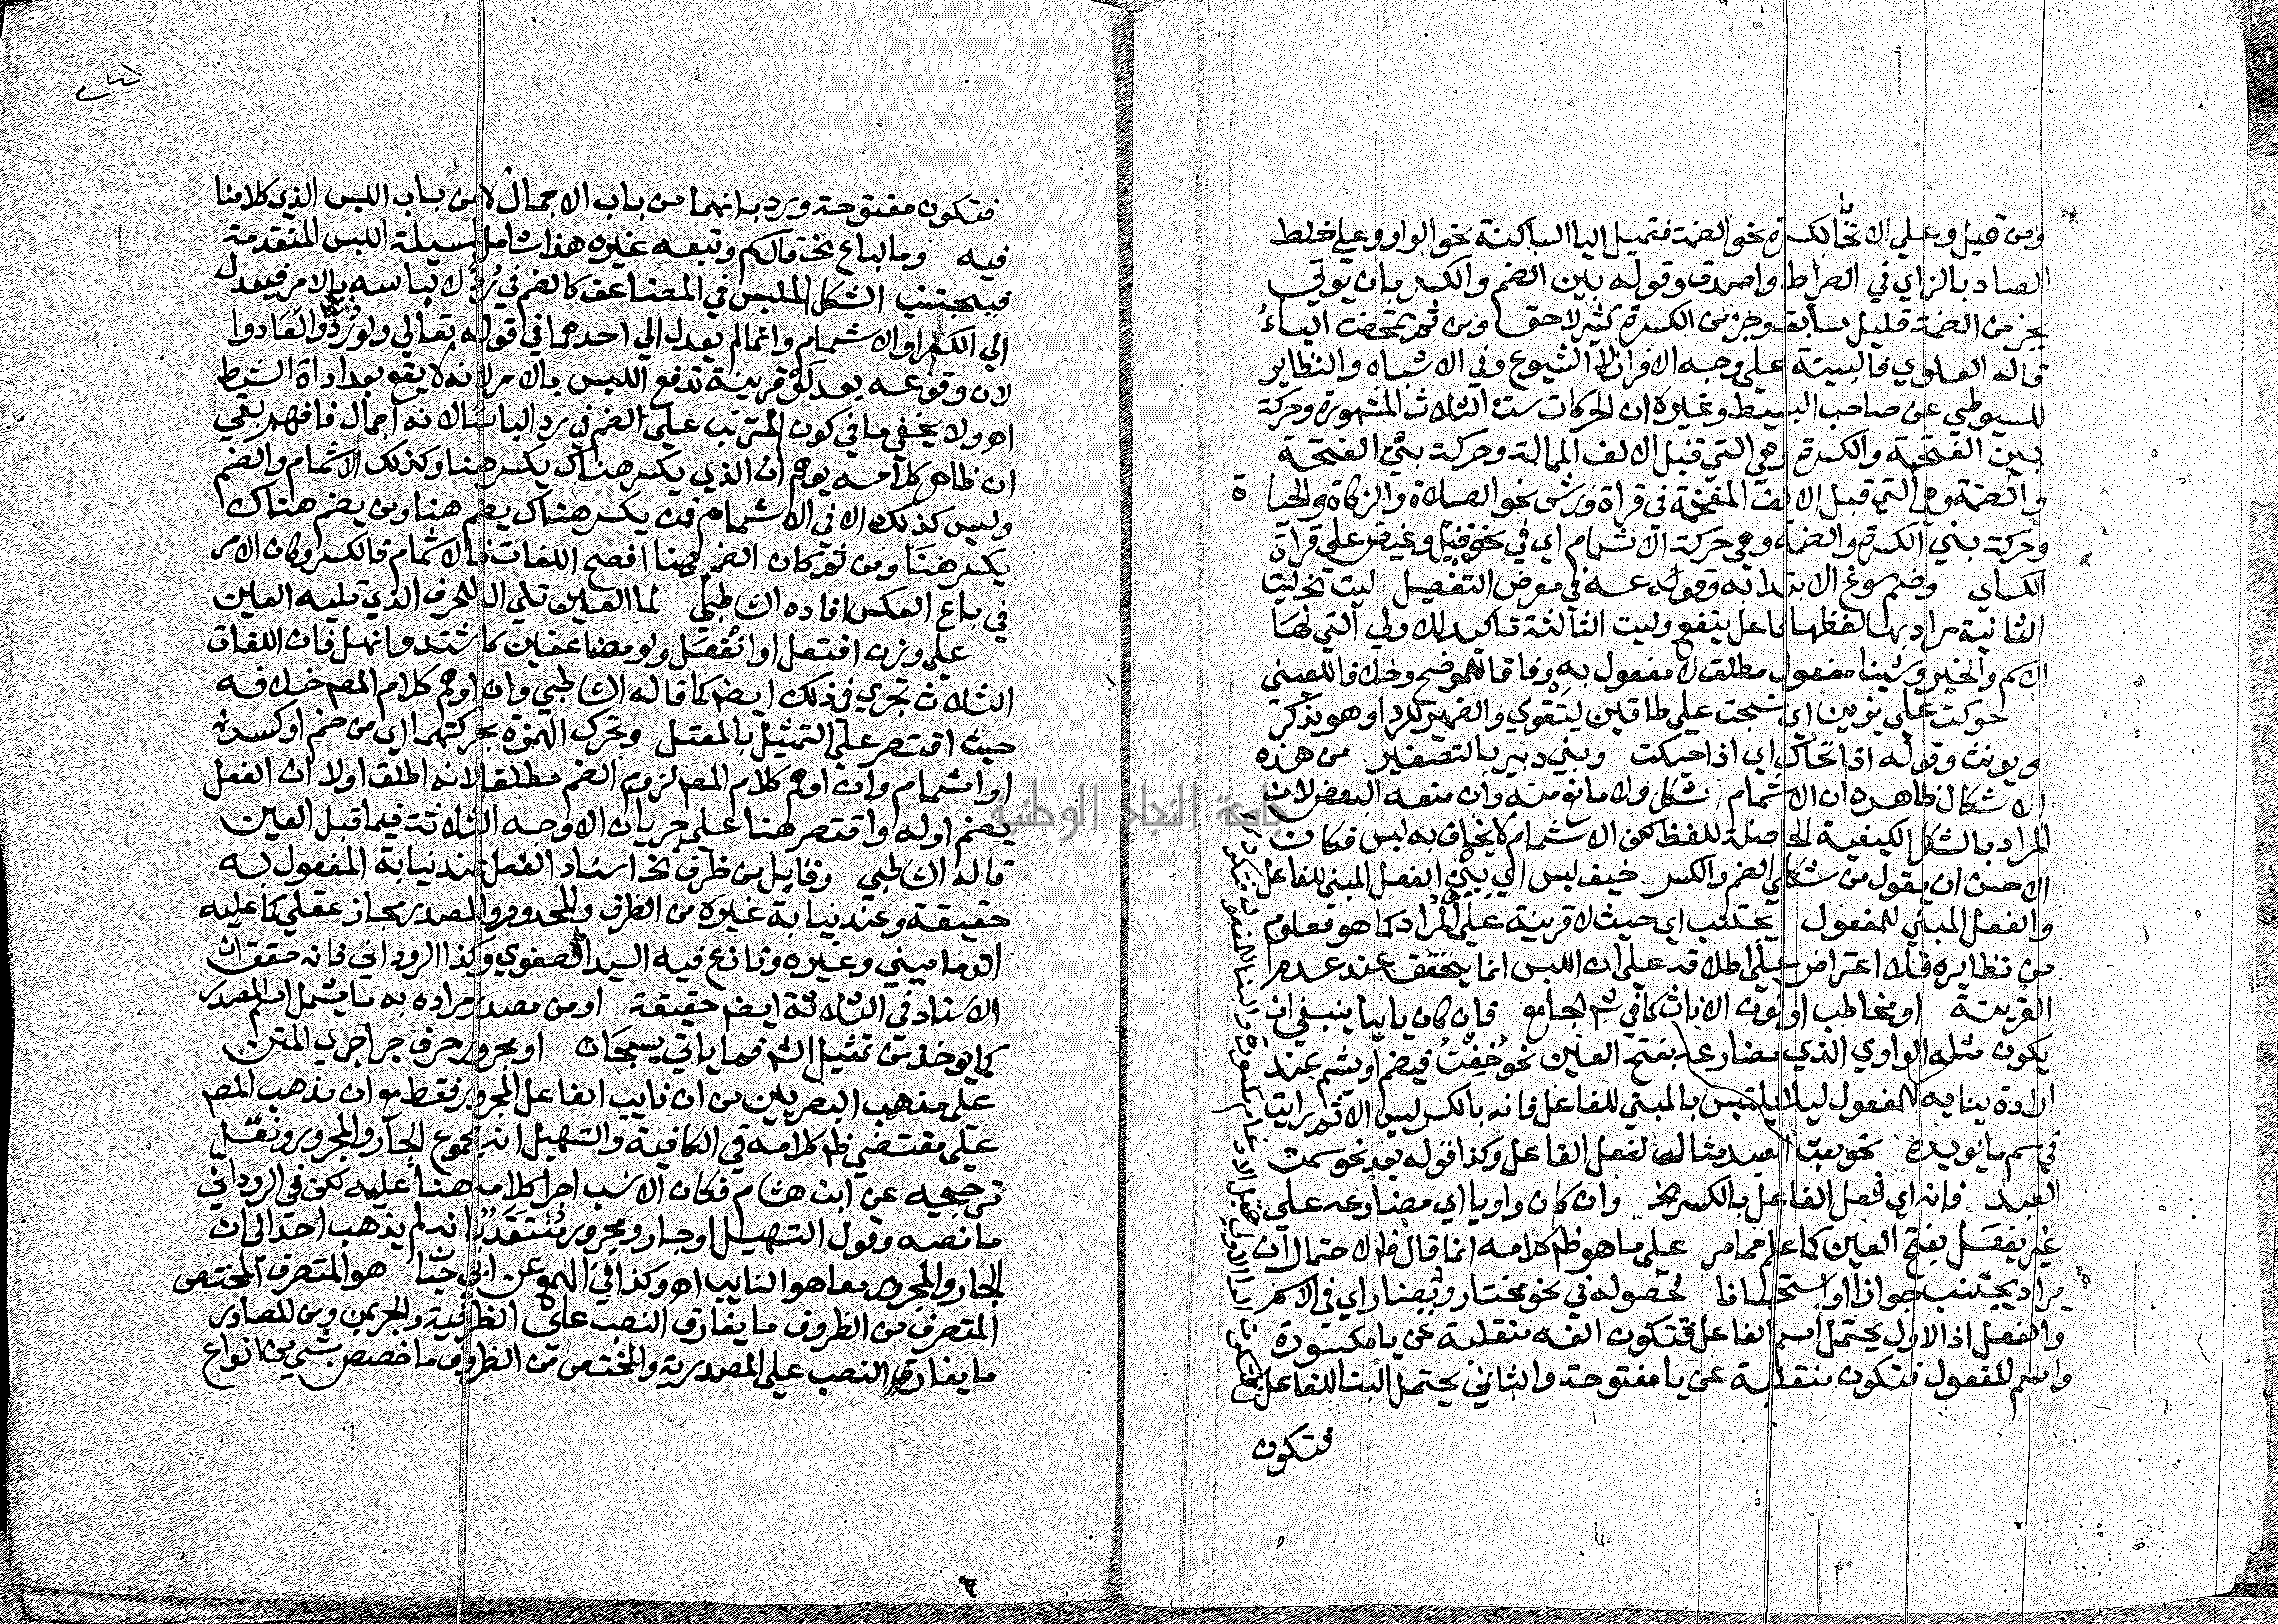 ومن قيل وعلي الانتحا بالكسرة نحو الضمة فتميل اليا الساكنة نحو الواو وعلي خلط
الصاد بالزاي في الصراط واصدق وقوله بين الضم والكسر بان يوتي
بجزء من الضمة قليل سابق وجزء من الكسرة كثير لاحق ومن ثم تمحضت الياء
قاله العلوي فالبينية علي وجه الافراز لا الشيوع وفي الاشباه والنظاير
للسيوطي عن صاحب البسيط وغيره ان الحركات ست الثلاث المشهورة وحركة
بين الفتحة والكسرة وهي التي قبل الالف الممالة وحركة بين الفتحة
والضمة وهي التي قبل الالف المفخمة في قراة ورش نحو الصلاة والزكاة والحياة
وحركة بين الكسرة والضمة وهي حركة الاشمام اي في نحو قيل وغيض علي قراة
الكساي وضم سوغ الابتدا به وقوعه في معرض التفصيل ليت نحو ليت
الثانية مراد بها لفظها فاعل ينفع وليت الثالثة تاكيد للاولي التي لها
الاسم والخبر وشيئا مفعول مطلق لا مفعول به وفاقا للموضح وخلافا للعيني
حوكت علي نيرين اي نسجت علي طاقين لتقوي والضمير للرداء وهو يذكر
ويونث وقوله اذا تحاك اي اذا حيكت وبني دبير بالتصغير من هذه
الاشكال ظاهره ان الاشمام شكل ولا مانع منه وان منعه البعض لان
المراد بالشكل الكيفية الحاصلة للفظ لكن الاشمام لا يخاف به لبس فكان
الاحسن ان يقول من شكلي الضم والكسر خيف لبس اي بين الفعل المبني للفاعل
والفعل المبني للمفعول يجتنب اي حيث لا قرينة علي المراد كما هو معلوم
من نظايره فلا اعتراض علي اطلاقه علي ان اللبس انما يتحقق عند عدم
القرينة او مخاطب او نون الاناث كما في شم الجامع فان كان يا ييا ينبغي ان
يكون مثله الواوي الذي مضارعه بفتح العين نحو خفت فيضم او يشم عند
ارادة بنايه للمفعول ليلا يلتبس بالمبني للفاعل فانه بالكسر ليس الا ثم رايت
في سم ما يويده نحو بعت العبد مثاله لفعل الفاعل وكذا قوله بعد نحو سمت
العبد فانه اي فعل الفاعل بالكسر الخ وان كان واويا اي مضارعه علي
غير يفعل بفتح العين كما علم مما مر علي ما هو ظم كلامه انما قال ظم لاحتمال ان
مراد يجتنب جوازا او استحسانا لحصوله في نحو مختار وتضار اي في الاسم
والفعل اذ الاول يحتمل اسم الفاعل فتكون الفه منقلبة عن يا مكسورة
واسم المفعول فتكون منقلبة عن يا مفتوحة والثاني يحتمل البنا للفاعل
فتكون
فتكون مفتوحة ورد بانهما من باب الاجمال لا من باب اللبس الذي كلامنا
فيه وما لباع نحت قالكم وتبعه غيره هذا شامل لمسيلة اللبس المتقدمة
فيجتنب الشكل الملبس في المضاعف كالضم في رد لالباسه بالامر فيعدل
الي الكسر او الاشمام وانما لم يعدل الي احدهما في قوله تعالي ولو ردوا لعادوا
لان وقوعه بعد لو قرينة تدفع اللبس بالامر لانه لا يقع بعد اداة الشرط
اهو ولا يخفي ما في كون المترتب علي الضم في رد الباسا لانه اجمال فافهم بقي
ان ظاهر كلامه يوهم ان الذي يكسر هناك يكسر هنا وكذلك الاشمام والضم
وليس كذلك الا في الاشمام فمن يكسر هناك يضم هنا ومن يضم هناك
يكسر هنا ومن ثم كان الضم هنا افصح اللغات فالاشمام فالكسر وكان الامر
في باع العكس افاده الشاطبي لما العين تلي اي للحرف الذي تليه العين
علي وزن افتعل او انفعل ولو مضاعفين كاشتد وانهل فان اللغات
الثلاث تجري في ذلك ايضم كما قاله الشاطبي وان اوهم كلام المص خلافه
حيث اقتصر علي التمثيل بالمعتل وتحرك الهمزة بحركتهما اي من ضم او كسر
او اشمام وان اوهم كلام المص لزوم الضم مطلقا لانه اطلق اولا ان الفعل
يضم اوله واقتصر هنا علي جريان الاوجه الثلاثة فيما قبل العين
قاله الشاطبي وقابل من ظرف الخ اسناد الفعل عند نيابة المفعول به
حقيقة وعند نيابة غيره من الظرف والمجرور والمصدر مجاز عقلي كما عليه
الدماميني وغيره ونازع فيه السيد الصفوي وكذا الروداني فانه حقق ان
الاسناد في الثلاثة ايضم حقيقة او من مصدر مراده به ما يشمل اسم المصدر
كما يوخذ من تمثيل الشم فيما ياتي بسبحان او مجرور حرف جر اجري المتن
علي مذهب البصريين من ان نايب الفاعل المجرور فقط مع ان مذهب المص
علي مقتضي ظم كلامه في الكافية والتسهيل انه مجموع الجار والمجرور ونقل
ترجيحه عن ابن هشام فكان الانسب اجرا كلامه هنا عليه لكن في الروداني
ما نصه وقول التسهيل او جار ومجرور منتقد بانه لم يذهب احد الي ان
الجار والمجرور معا هو النايب اهو وكذا في الهمع عن ابي حيان هو المتصرف المختص
المتصرف من الظروف ما يفارق النصب علي الظرفية والجر بمن ومن المصادر
ما يفارق النصب علي المصدرية والمختص من الظروف ما خصص بشي من انواع
جامعة النجاح الوطنية